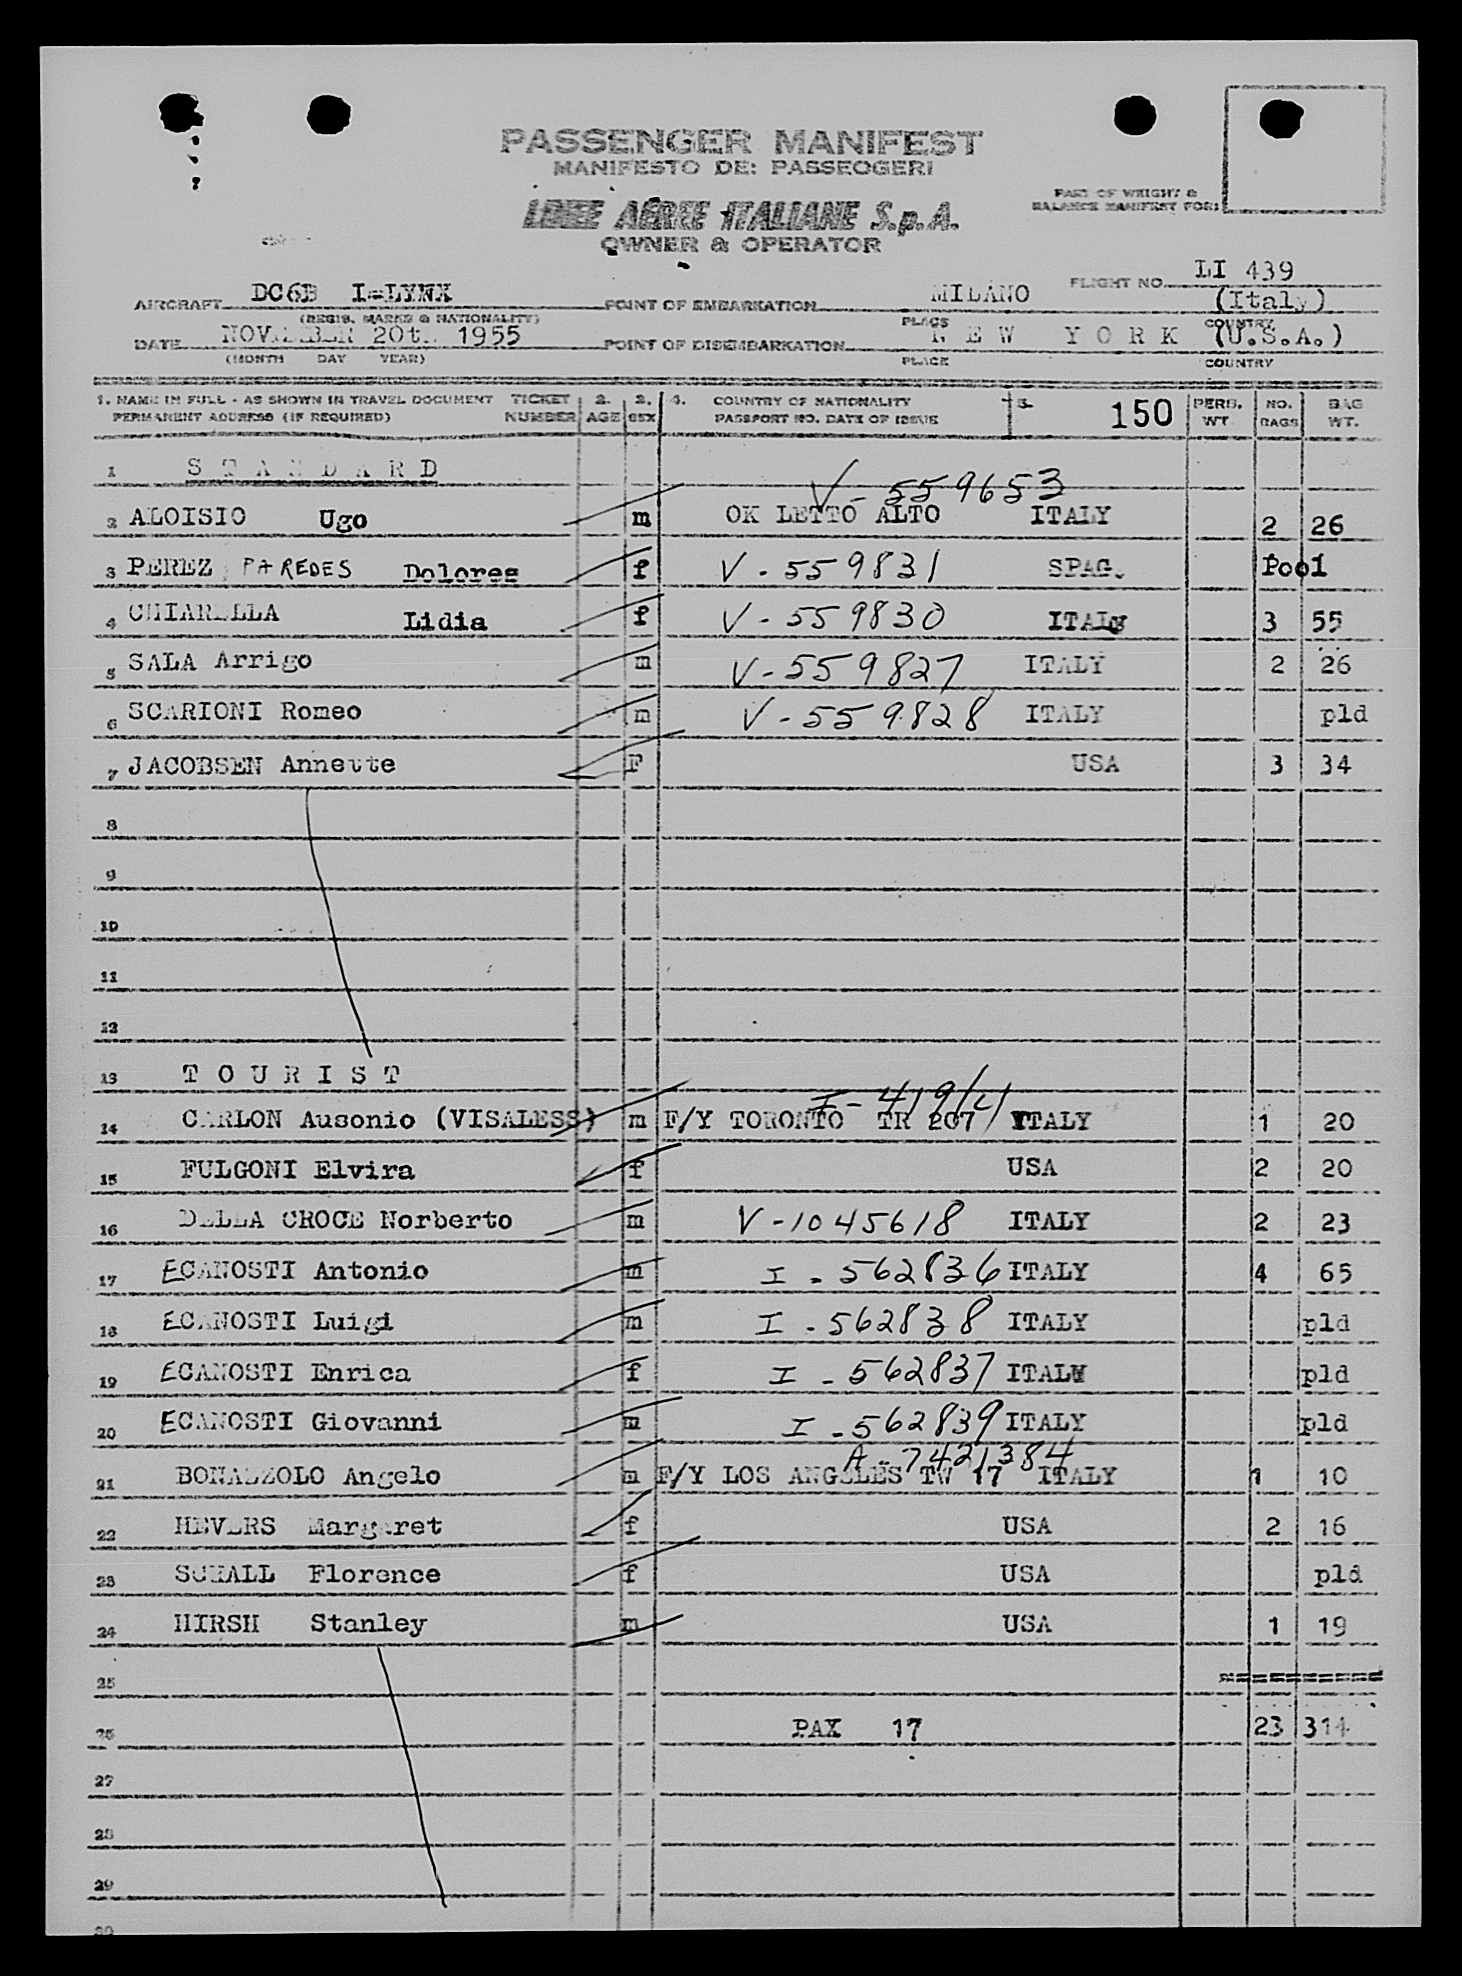 PASSENGER MANIFEST
MANIFESTO DEI PASSEGGERI
LINEE AEREE ITALIANE S.p.A.
OWNER & OPERATOR
PART OF WEIGHT &
BALANCE MANIFEST FORM
FLIGHT NO. LI 439
AIRCRAFT DC6B I-LYNX POINT OF EMBARKATION MILANO (Italy)
(REGIS. MARKS & NATIONALITY) PLACE COUNTRY
DATE NOVEMBER 20th 1955 POINT OF DISEMBARKATION NEW YORK (U.S.A.)
(MONTH DAY YEAR) PLACE COUNTRY
1. NAME IN FULL - AS SHOWN IN TRAVEL DOCUMENT TICKET 2. 3. 4. COUNTRY OF NATIONALITY 5. 150 PERS. NO. BAG
PERMANENT ADDRESS (IF REQUIRED) NUMBER AGE SEX PASSPORT NO. DATE OF ISSUE WT. BAGS WT.
1 S T A N D A R D
V - 559653
2 ALOISIO Ugo m OK LETTO ALTO ITALY 2 26
3 PEREZ PAREDES Dolores f V - 559831 SPAG. Pool
4 CHIARELLA Lidia f V - 559830 ITALy 3 55
5 SALA Arrigo m V - 559827 ITALY 2 26
6 SCARIONI Romeo m V - 559828 ITALY pld
7 JACOBSEN Annette F USA 3 34
8
9
10
11
12
13 T O U R I S T
I - 419141
14 CARLON Ausonio (VISALESS) m F/Y TORONTO TR 207 ITALY 1 20
15 FULGONI Elvira f USA 2 20
16 DELLA CROCE Norberto m V - 1045618 ITALY 2 23
17 ECANOSTI Antonio m I - 562836 ITALY 4 65
18 ECANOSTI Luigi m I - 562838 ITALY pld
19 ECANOSTI Enrica f I - 562837 ITALY pld
20 ECANOSTI Giovanni m I - 562839 ITALY pld
A - 7421384
21 BONAZZOLO Angelo m F/Y LOS ANGELES TW 17 ITALY 1 10
22 HEVERS Margaret f USA 2 16
23 SCHALL Florence f USA pld
24 HIRSH Stanley m USA 1 19
25
26 PAX 17 23 314
27
28
29
30